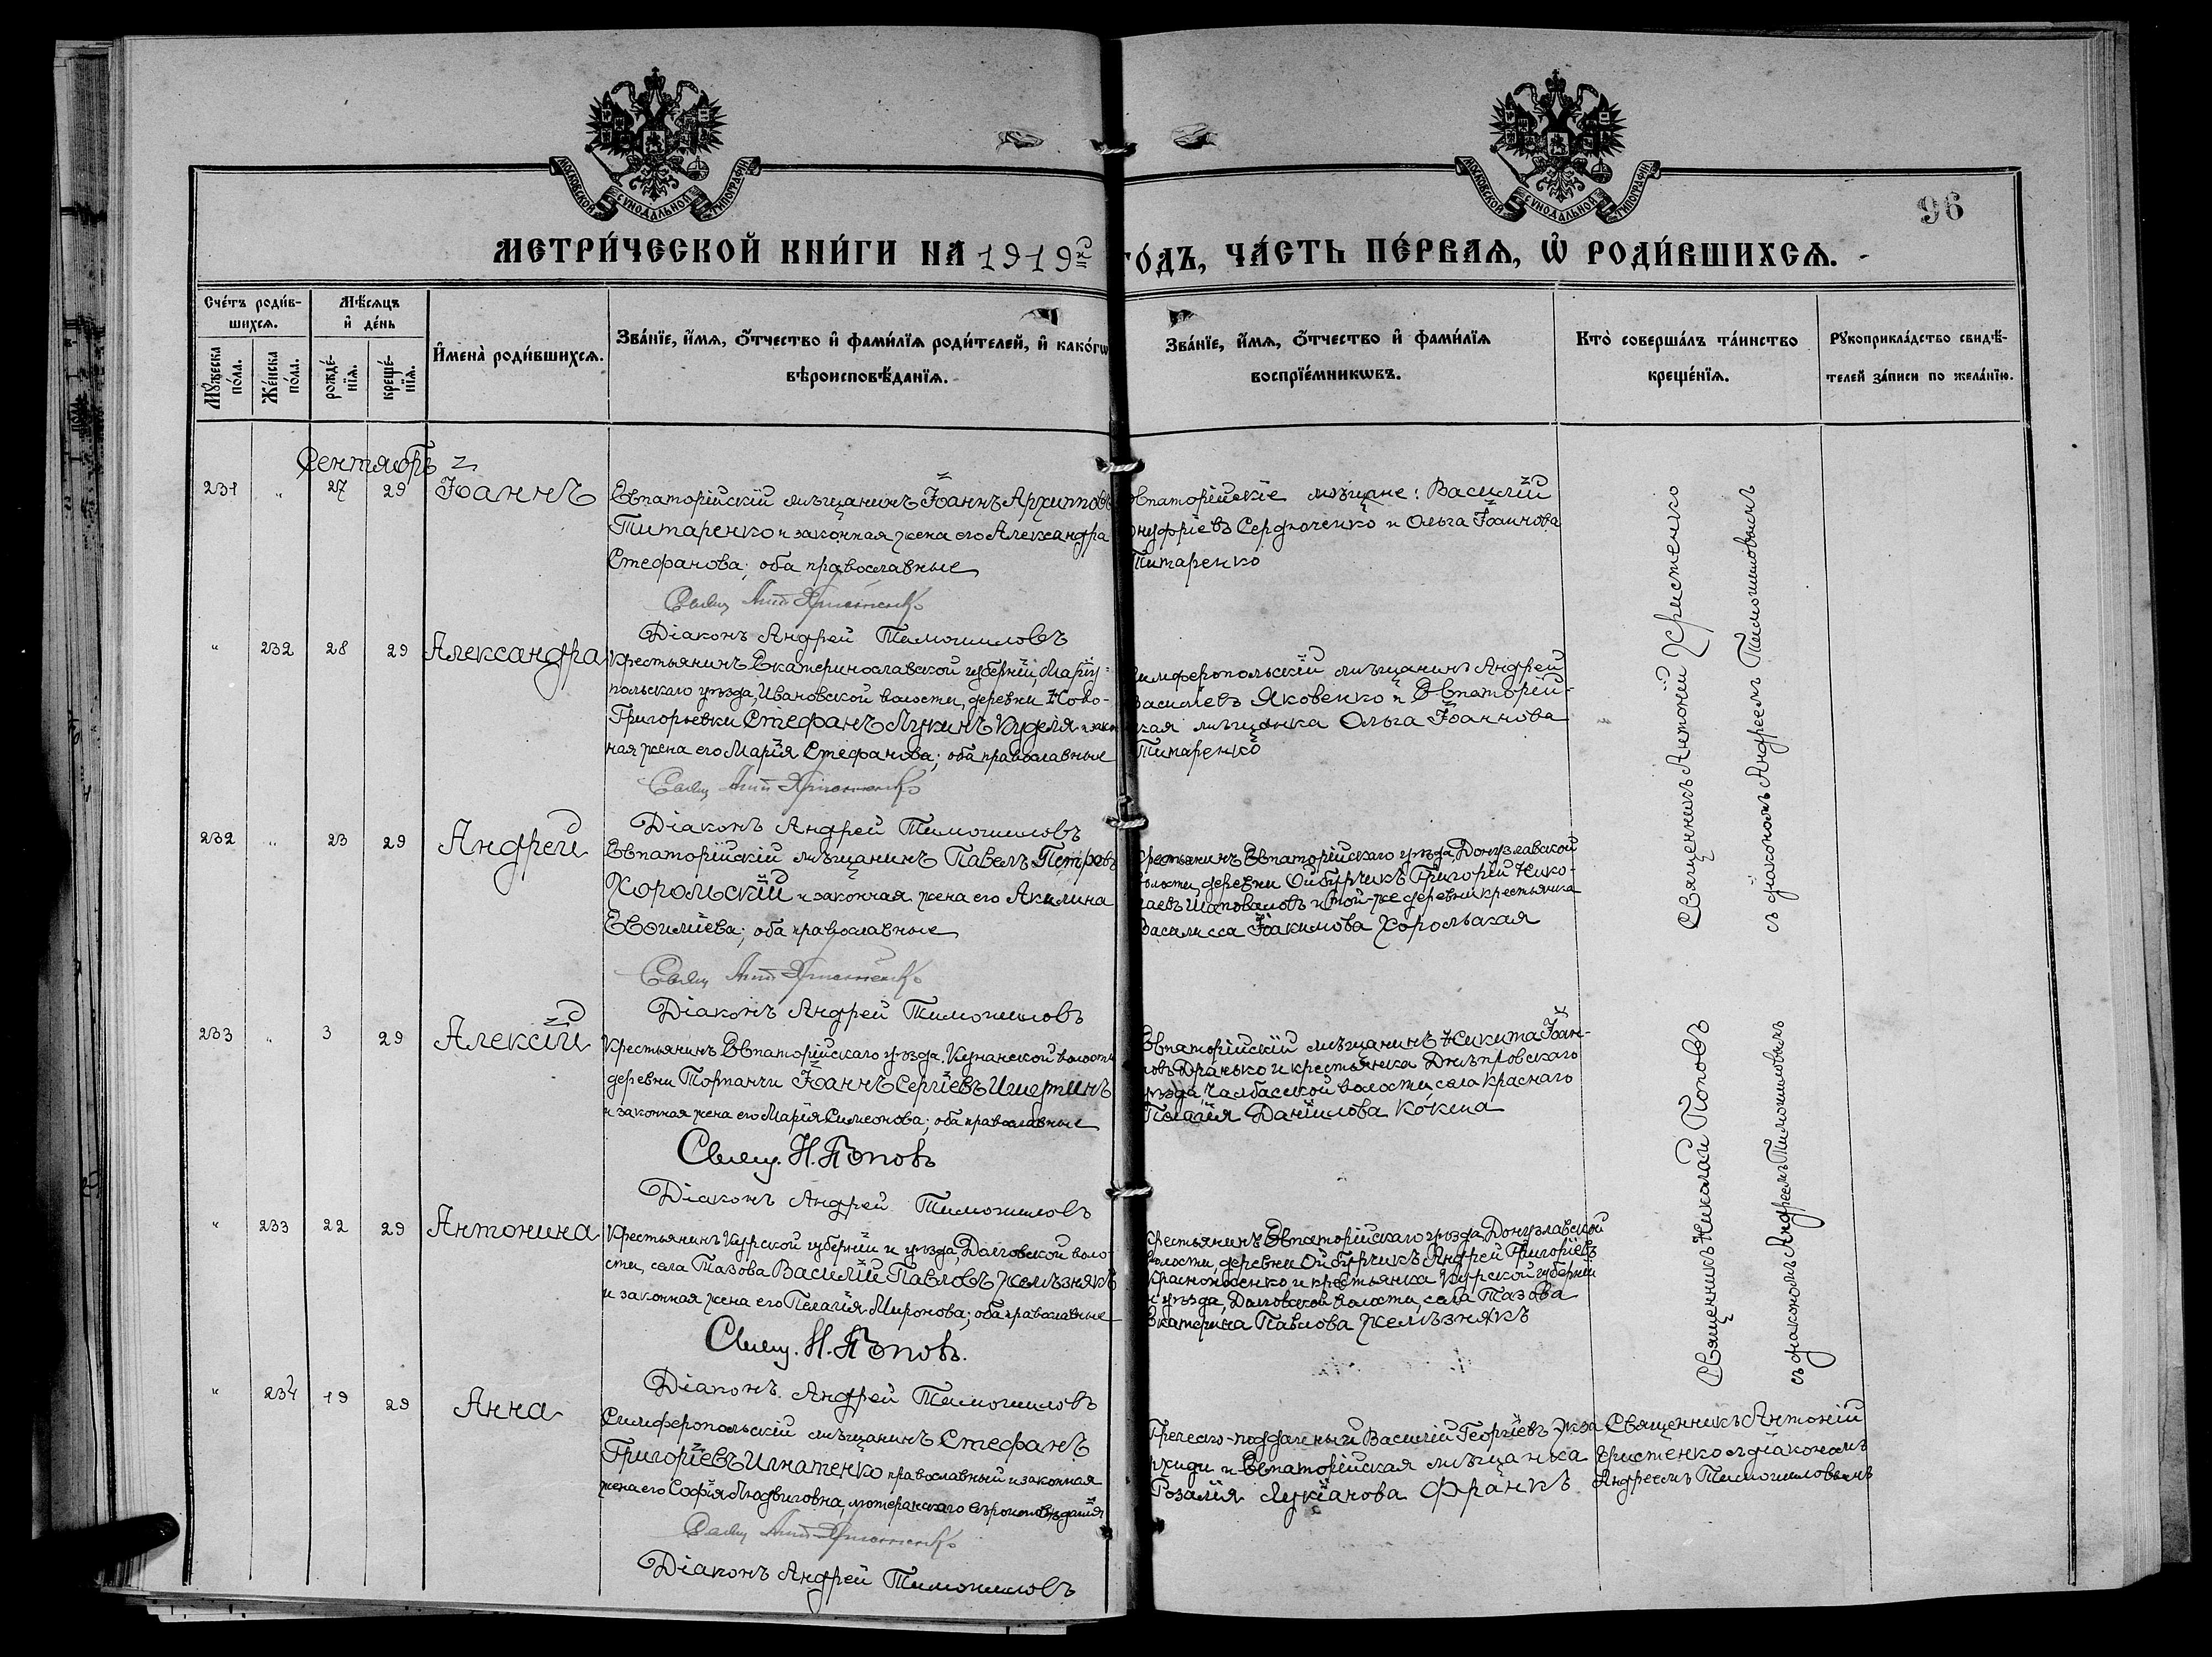 МОСКОВСКОЙ СѴНОДАЛЬНОЙ ТИПОГРАФІИ
МОСКОВСКОЙ СѴНОДАЛЬНОЙ ТИПОГРАФІИ
96
МЕТРИ́ЧЕСКОЙ КНИ́ГИ НА 1919й
ГО́ДЪ, ЧА́СТЬ ПЕ́РВАѦ, Ѡ҆ РОДИ́ВШИХСѦ.
Сче́тъ роди́в-
шихсѧ.
Мꙋ́жеска по́ла.
Же́нска по́ла.
Мѣ́сѧцъ
и҆ де́нь
рожде́-
нїѧ.
креще́-
нїѧ.
И҆мена̀ роди́вшихсѧ.
Зва́нїе, и҆́мѧ, ѻ҆́тчество и҆ фами́лїѧ роди́телей, и҆ како́гѡ
вѣроисповѣ́данїѧ.
Зва́нїе, и҆́мѧ, ѻ҆́тчество и҆ фами́лїѧ
воспрїе́мникѡвъ.
Кто̀ соверша́лъ та́инство
креще́нїѧ.
Рꙋкоприкла́дство свидѣ́-
телей за́писи по жела́нїю.
Сентябрь
231 " 27 29 Іоаннъ
Евпаторійскій мѣщанинъ Іоаннъ Архиповъ
Титаренко и законная жена его Александра
Стефанова; оба православные
Свящ Ант Христенко
Діаконъ Андрей Тимошиловъ
Евпаторійскіе мѣщане: Василій
Онуфріевъ Сердюченко и Ольга Іоаннова
Титаренко
" 232 28 29 Александра
Крестьянинъ Екатеринославской губерніи, Маріу=
польскаго уѣзда, Ивановской волости, деревни Ново-
Григорьевки Стефанъ Лукинъ Куделя и закон
ная жена его Марія Стефанова; оба православные
Свящ Ант Христенко
Діаконъ Андрей Тимошиловъ
Симферопольскій мѣщанинъ Андрей
Василіевъ Яковенко и Евпаторій-
ская мѣщанка Ольга Іоаннова
Титаренко
Священникъ Антоній Христенко
съ діакономъ Андреемъ Тимошиловымъ
232 " 23 29 Андрей
Евпаторійскій мѣщанинъ Павелъ Петровъ
Хорольскій и законная жена его Акилина
Евѳиміева; оба православные
Свящ Ант Христенко
Діаконъ Андрей Тимошиловъ
Крестьянинъ Евпаторійскаго уѣзда, Донузлавской
волости, деревни Ойбурчикъ Григорій Нико-
лаевъ Шаповаловъ и той-же деревни крестьянка
Василисса Іоакимова Хорольская
233 " 3 29 Алексій
Крестьянинъ Евпаторійскаго уѣзда, Кунанской волости
деревни Торпанчи Іоаннъ Сергіевъ
и законная жена его Марія Симеонова; оба православные
Свящ. Н. Поповъ
Діаконъ Андрей Тимошиловъ
Евпаторійскій мѣщанинъ Никита Іоан-
новъ Дранько и крестьянка Днѣпровскаго
уѣзда, Чалбасской волости, села Краснаго
Пелагія Даніилова Кокена
Священникъ Николай Поповъ
съ діакономъ Андреемъ Тимошиловымъ
" 233 22 29 Антонина
Крестьянинъ Курской губерніи и уѣзда, Долговской воло-
сти, села Тазова Василій Павловъ Желѣзнякъ
и законная жена его Пелагія Миронова; оба православные
Свящ. Н. Поповъ.
Діаконъ Андрей Тимошиловъ
Крестьянинъ Евпаторійскаго уѣзда, Донузлавской
волости, деревни Ойбурчикъ Андрей Григоріевъ
Красноженко и крестьянка Курской губерніи
и уѣзда, Долговской волости, села Тазова
Екатерина Павлова Желѣзнякъ
" 234 19 29 Анна
Симферопольскій мѣщанинъ Стефанъ
Григоріевъ Игнатенко православный и законная
жена его Софія Людвиговна, лютеранскаго вѣроисповѣданія
Свящ Ант Христенко
Діаконъ Андрей Тимошиловъ
Греческо-подданный Василій Георгіевъ
и Евпаторійская мѣщанка
Розалія Лукіанова Франкъ
Священникъ Антоній
Христенко съ діакономъ
Андреемъ Тимошиловымъ